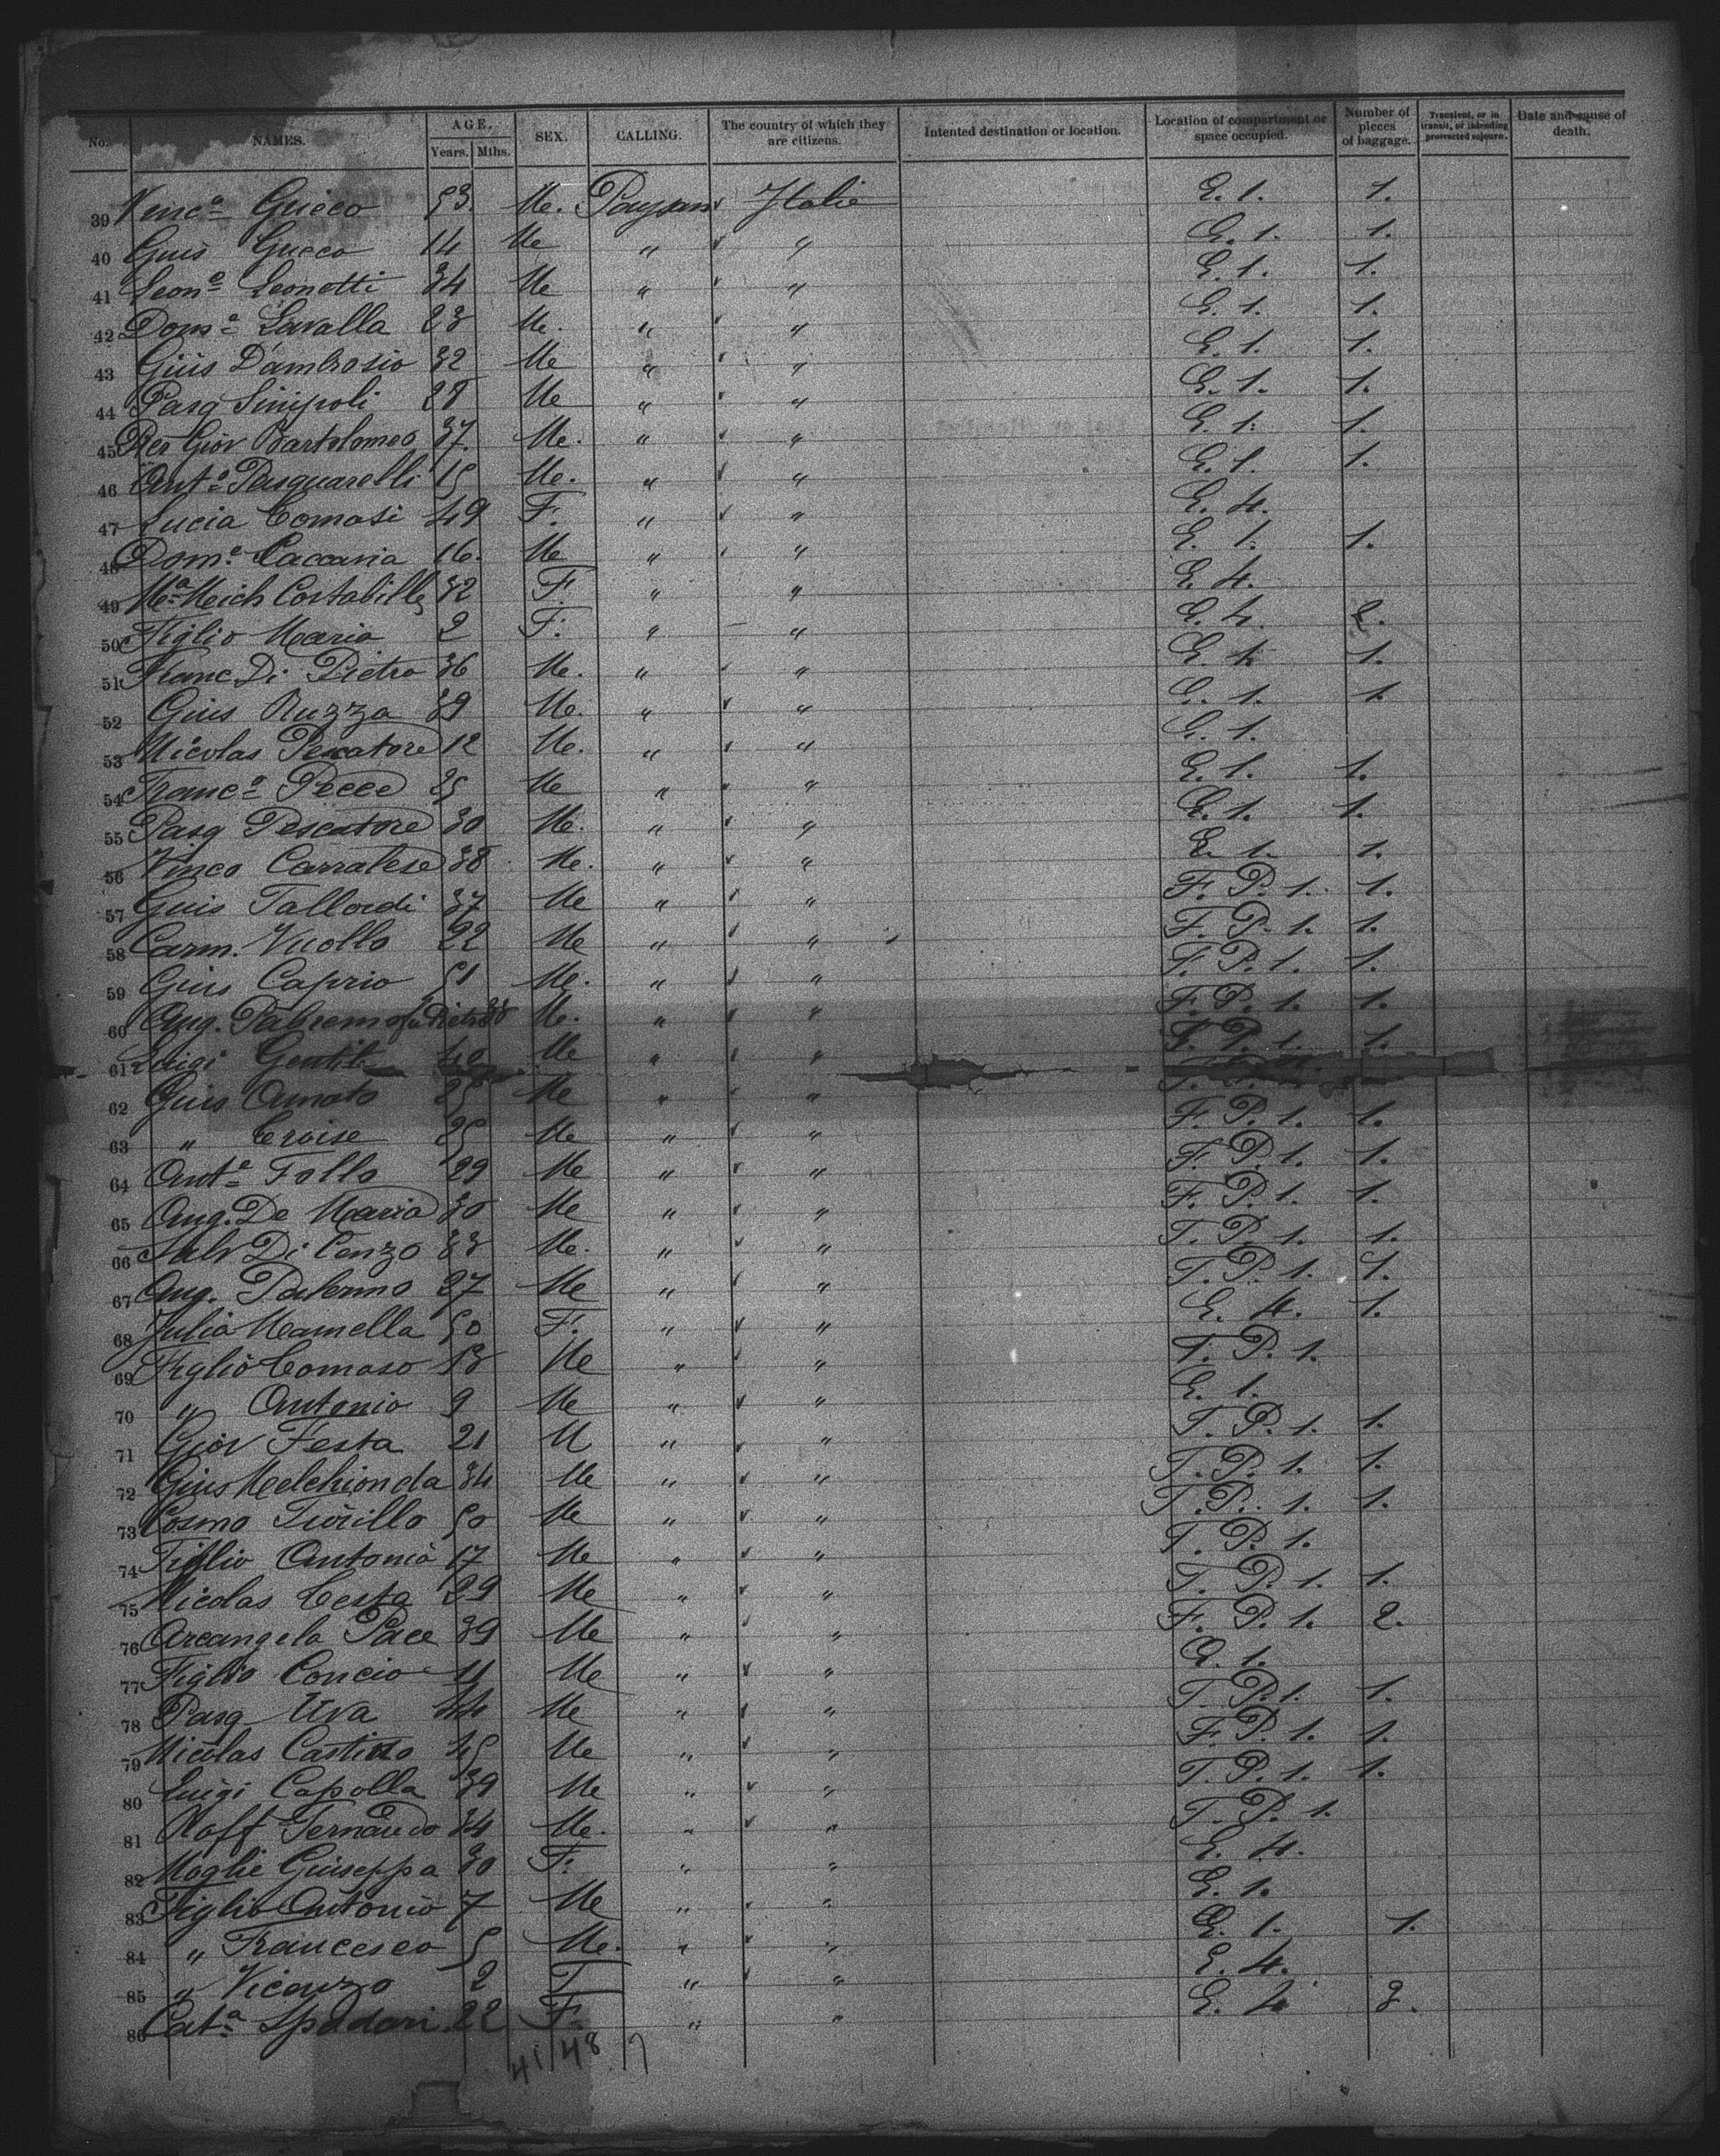 No. NAMES. AGE. Years. Mths. SEX. CALLING. The country of which they are citizens. Intented destination or location. Location of compartment or space occupied. Number of pieces of baggage. Transient, or in transit, of intending protracted sojourn. Date and cause of death.
39 Vincº Grieco 53. Me. Paysans Italie E. 1. 1.
40 Gius Grieco 14 Me " " E. 1. 1.
41 Leonº Leonetti 34 Me " " E. 1. 1.
42 Domº Lavalla 23 Me. " " E. 1. 1.
43 Gius D'ambrosio 32 Me " " E. 1. 1.
44 Pasq Sinipoli 28 Me " " E. 1. 1.
45 Giov Bartolomeo 37. Me. " " E. 1. 1.
46 Antº Pasquarelli 15 Me. " " E. 1. 1.
47 Lucia Comasi 49 F. " " E. 4.
48 Domº Caccavia 16. Me " " E. 1. 1.
49 Mª Mich Costabille 32 F " " E. 4.
50 Figlio Maria 2 F. " " E. 4. 2.
51 Franc. Di Pietro 36 Me. " " E. 1. 1.
52 Gius Ruzza 39 Me. " " E. 1. 1
53 Nicolas Pescatore 12 Me. " " E. 1.
54 Francº Pecce 25 Me " " E. 1. 1.
55 Pasq Pescatore 30 Me. " " E. 1. 1.
56 Vinco Carralese 38 Me. " " E. 1. 1.
57 Guis Tallordi 37 Me " " F. P. 1. 1.
58 Carm. Vuollo 22 Me " " F. P. 1. 1.
59 Gius Caprio 51 Me. " " F. P. 1. 1.
60 Ang. Palermo fu Pietro 38 Me. " " F. P. 1. 1.
61 Luigi Gentile 40 Me " " F. P. 1. 1.
62 Guis Amato 25 Me " "
63 " Croise 25 Me " " F. P. 1. 1.
64 Antº Follo 29 Me " " F. P. 1. 1.
65 Ang. De Maria 30 Me " " F. P. 1. 1.
66 Salv Di Cenzo 33 Me. " " F. P. 1. 1.
67 Ang. Palermo 27 Me " " F. P. 1. 1.
68 Julia Mamella 50 F. " " E. 4. 1.
69 Figlio Comaso 13 Me " " F. P. 1.
70 " Antonio 9 Me " " E. 1.
71 Giov Festa 21 M " " F. P. 1. 1.
72 Gius Melchionda 34 Me " " F. P. 1. 1.
73 Cosmo Fiorillo 50 Me " " F. P. 1. 1.
74 Figlio Antonio 17 Me " " F. P. 1.
75 Nicolas Cesta 29 Me " " F. P. 1. 1.
76 Arcangelo Pace 39 Me " " F. P. 1. 2.
77 Figlio Concio 11 Me " " E. 1.
78 Pasq Uva 44 Me " " F. P. 1. 1.
79 Nicolas Castino 45 Me " " F. P. 1. 1.
80 Luigi Capolla 39 Me " " F. P. 1. 1.
81 Raff Fernando 34 Me. " " F. P. 1.
82 Moglie Giuseppa 30 F. " " E. 4.
83 Figlio Antonio 7 Me " " E. 1.
84 " Francesco 5 Me. " " E. 1. 1.
85 " Vicenzo 2 F " " E. 4.
86 Catª Spadari 22 F. " " E. 4 2.
41/48 7